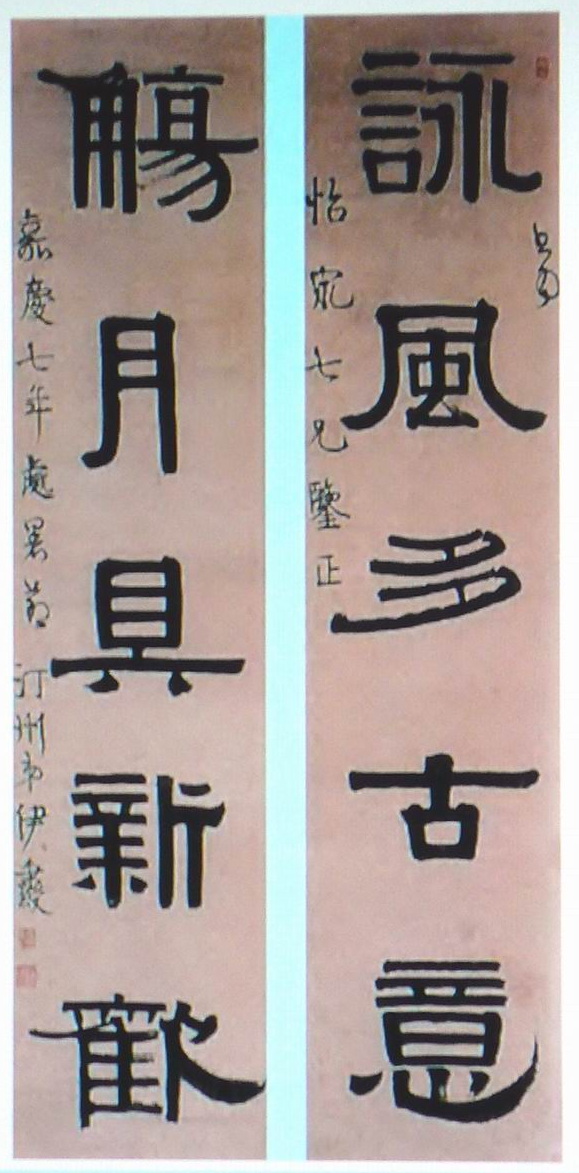 詠風多古意
怡七兄鑒正
觴月具新歡
嘉慶七年處暑節 汀州弟伊秉綬